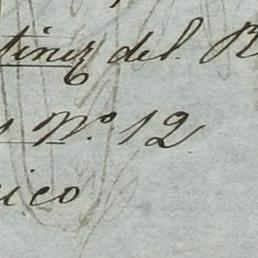 tinez del R
s N.º 12
ico